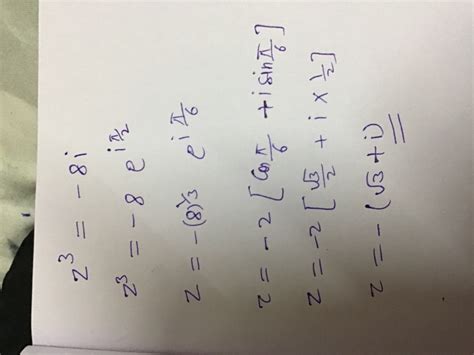 z³ = -8i
z³ = -8 e^{iπ/2}
z = -(8)^{1/3} e^{iπ/6}
z = -2 [cos π/6 + i sin π/6]
z = -2 [√3/2 + i × 1/2]
z = -(√3 + i)